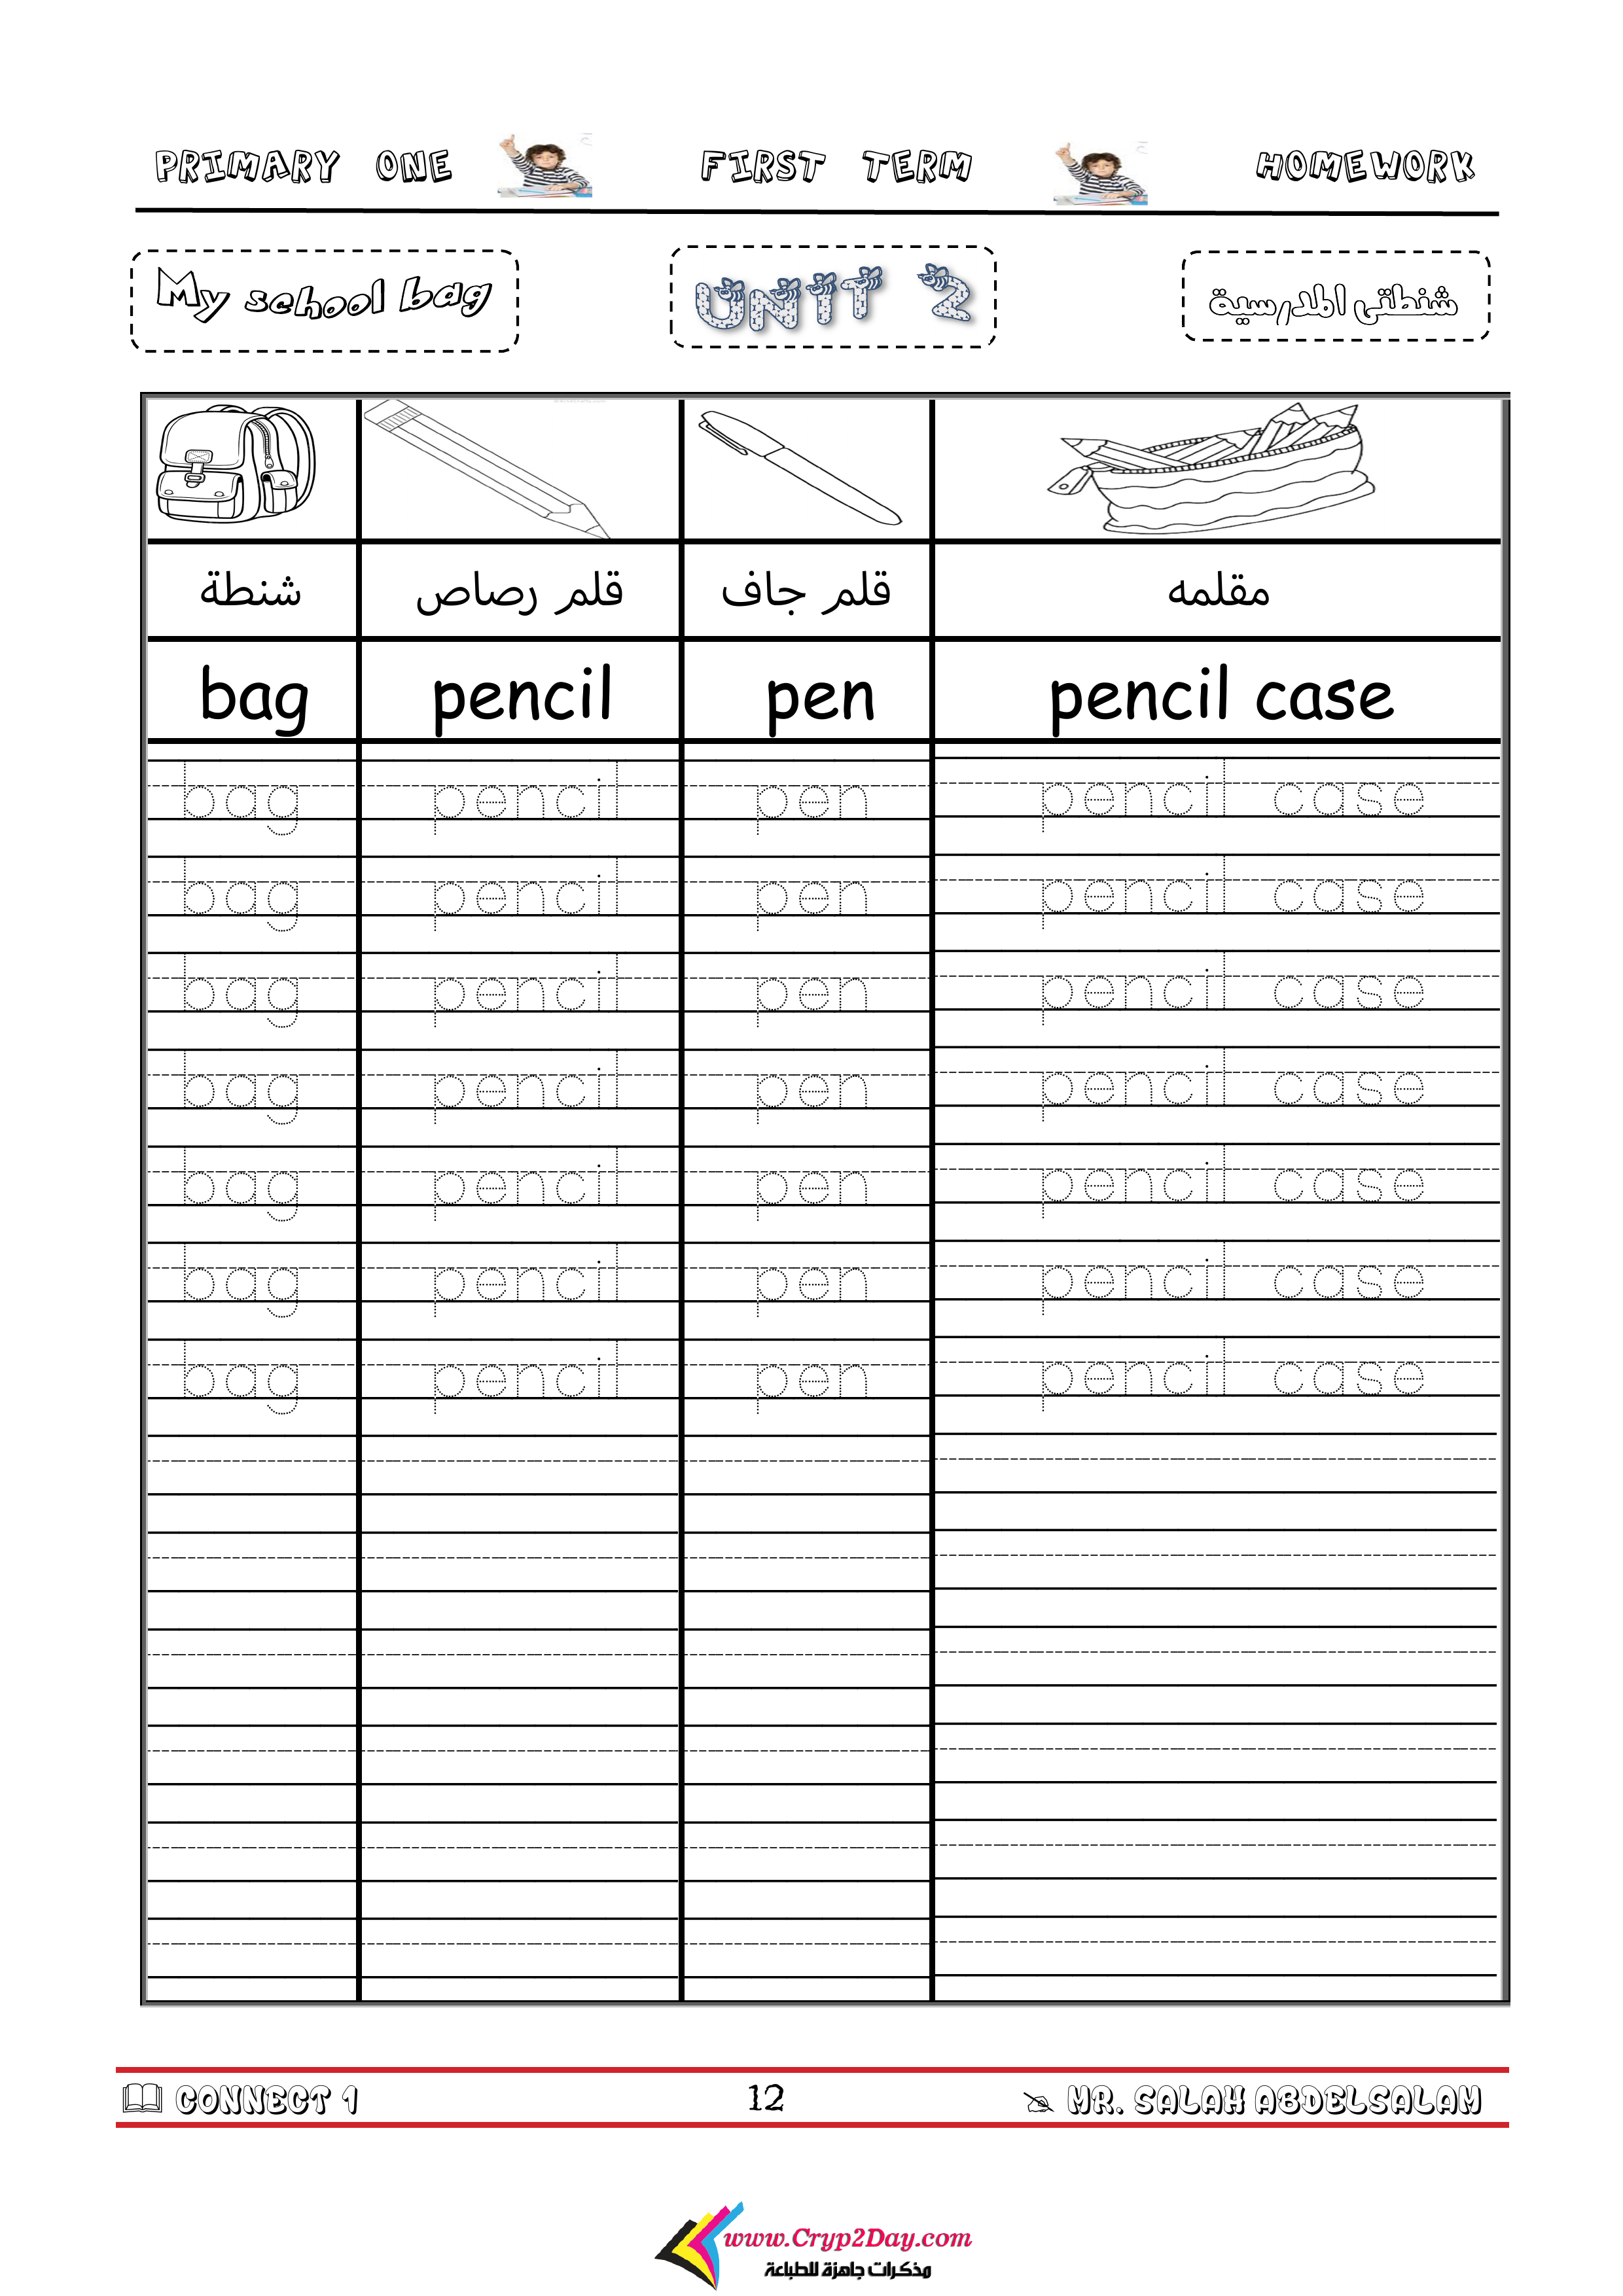 PRIMARY ONE FIRST TERM HOMEWORK
My school bag UNIT 2 شنطتى المدرسية
شنطة قلم رصاص قلم جاف مقلمه
bag pencil pen pencil case
bag pencil pen pencil case
bag pencil pen pencil case
bag pencil pen pencil case
bag pencil pen pencil case
bag pencil pen pencil case
bag pencil pen pencil case
bag pencil pen pencil case
CONNECT 1 12 MR. SALAH ABDELSALAM
www.Cryp2Day.com
مذكرات جاهزة للطباعة